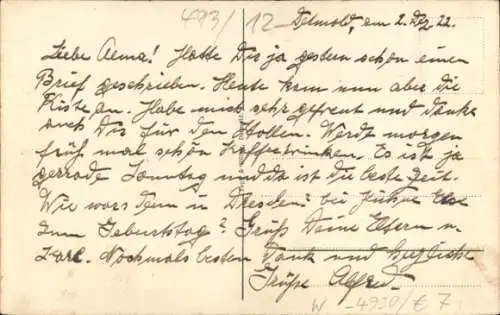 493/12
Detmold, am 2. Dez. 22.
Liebe Aenna! Hatte Dir ja gestern schön einen
Brief geschrieben. Heute kam nun aber die
Kiste an. Habe mich sehr gefreut und danke
auch Dir für den Stollen. Werdt morgen
früh mal schön Kaffeetrinken. Es ist ja
gerade Sonntag und da ist die beste Zeit.
Wie wars denn in Dresden? bei Else
zum Geburtstag? Grüß Deine Eltern u.
Karl. Nochmals besten Dank und herzliche
Grüße Alfred.
W -4930/€ 7